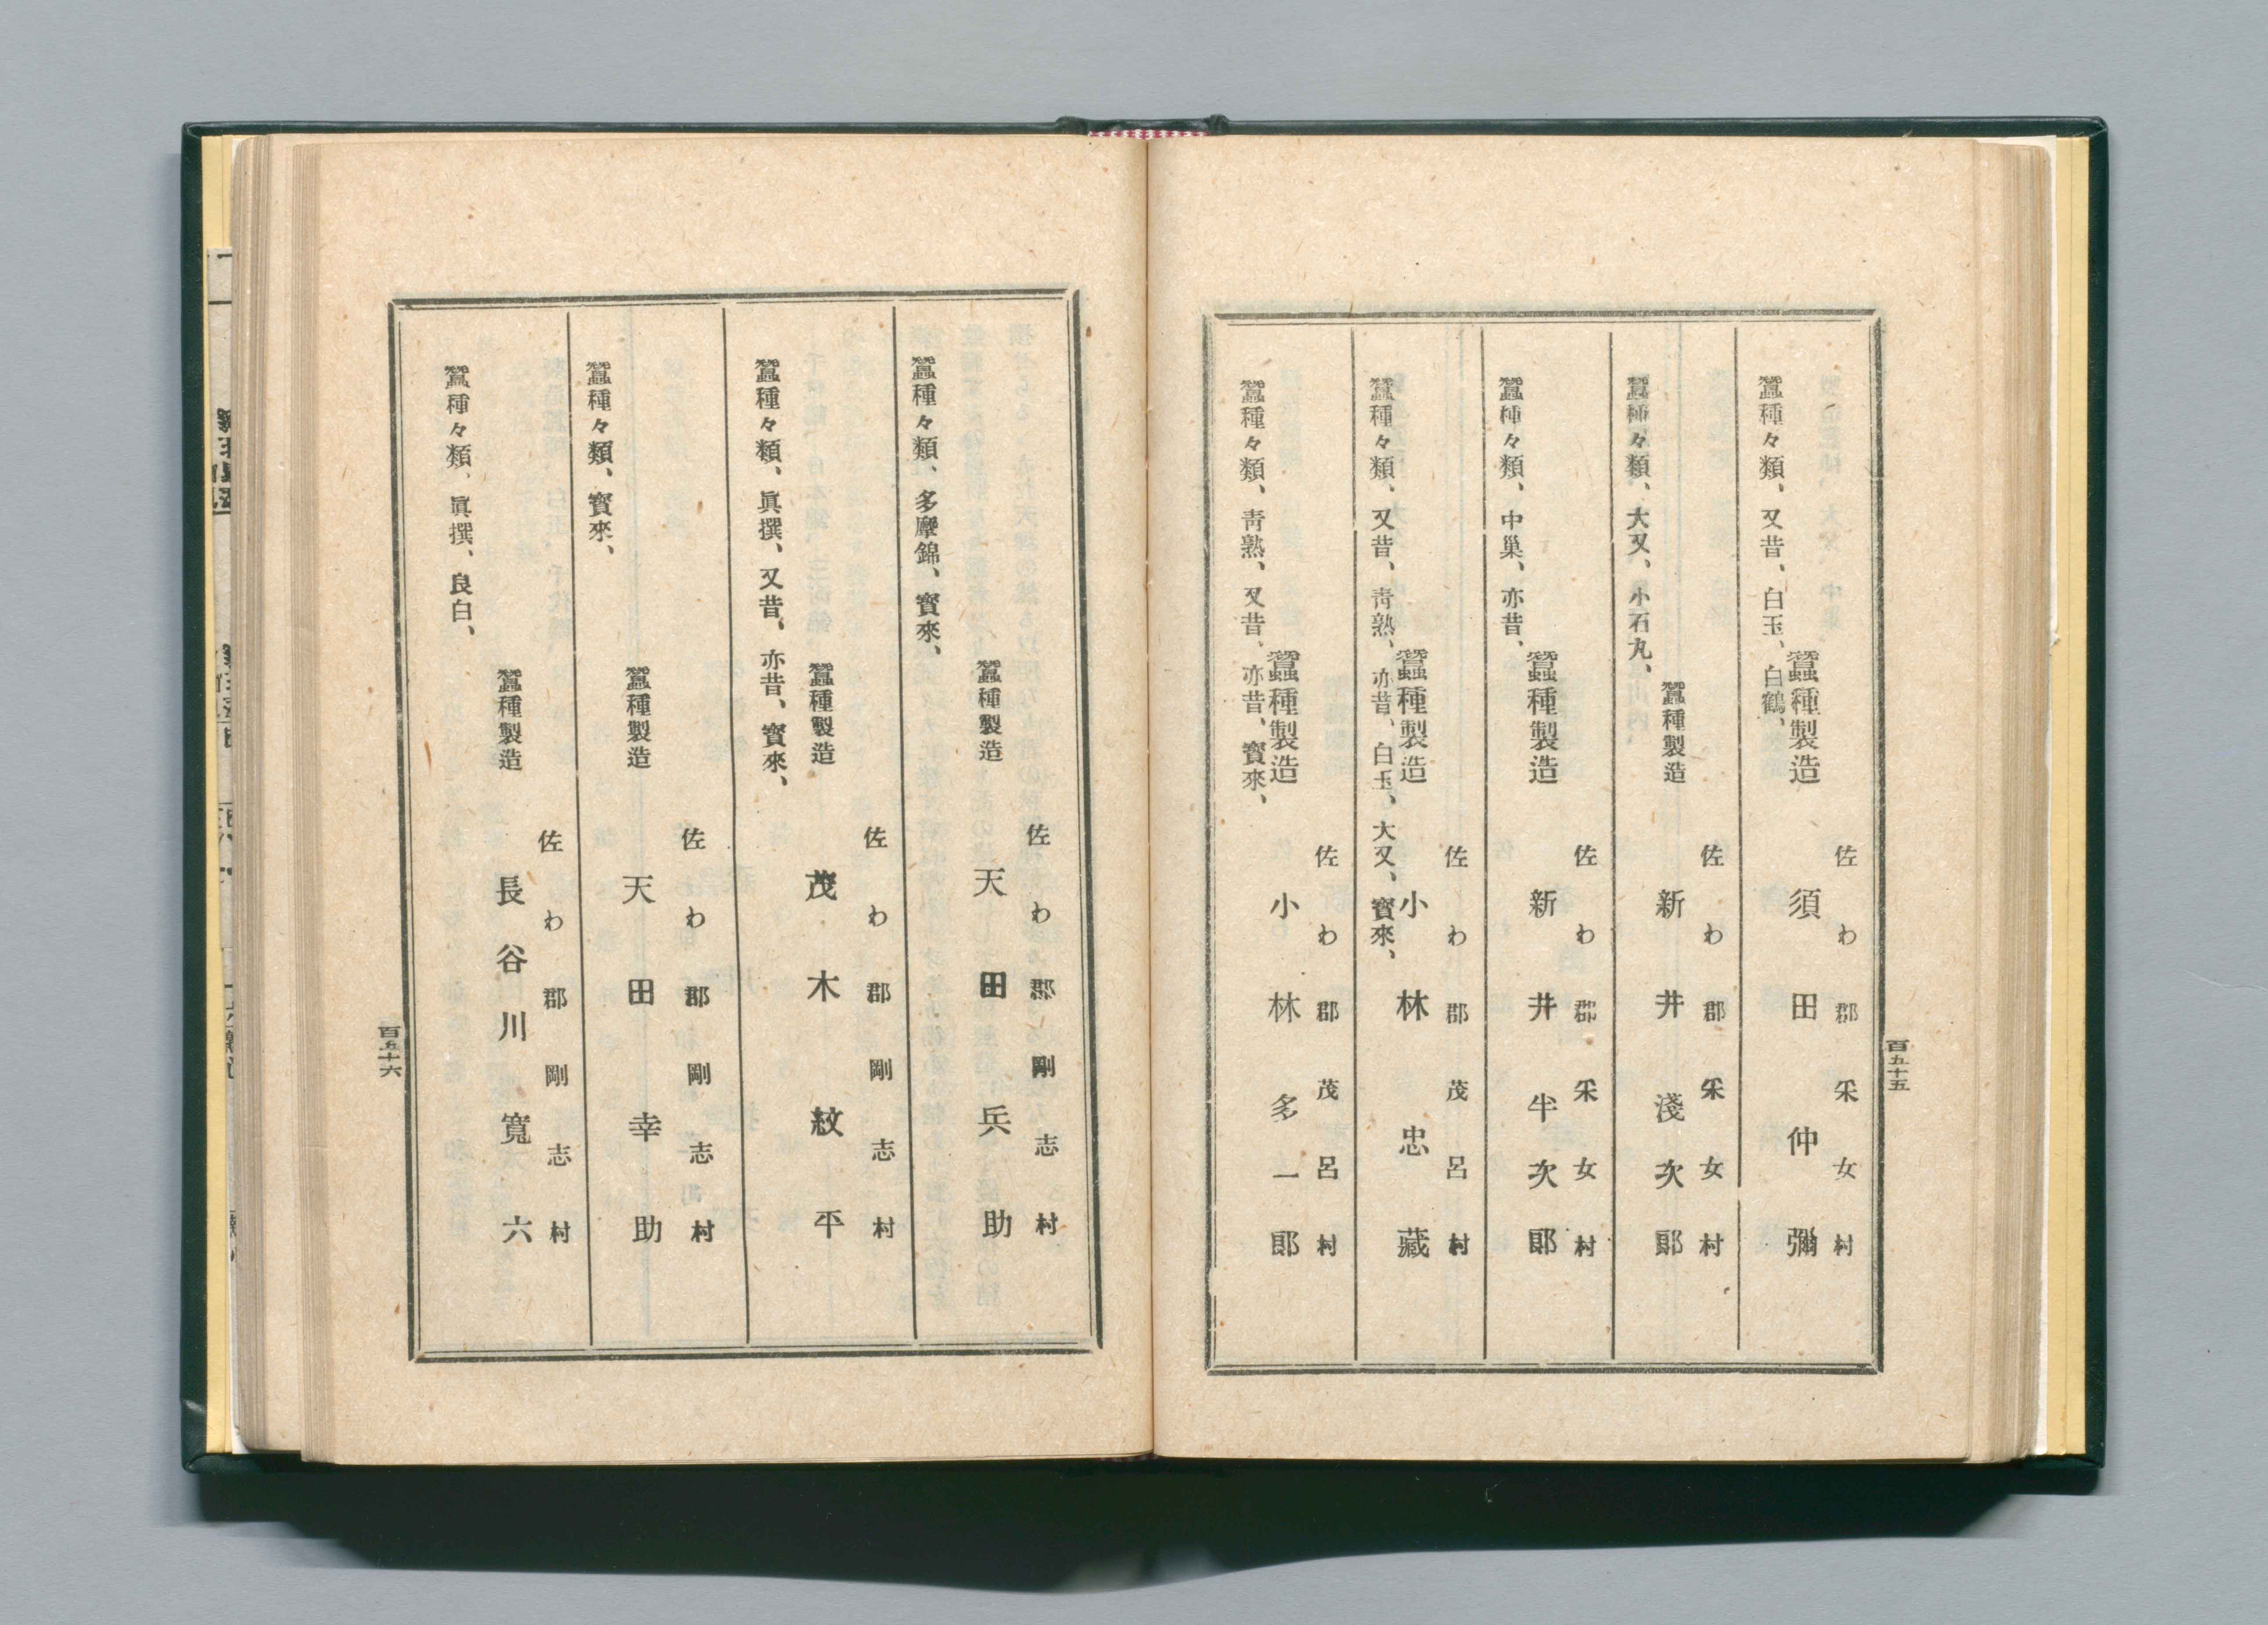 百五十五
佐わ郡釆女村
須田仲彌
蠶種製造
蠶種々類、又昔、白玉、白鶴、
佐わ郡釆女村
新井淺次郞
蠶種製造
蠶種々類、大又、小石丸、
佐わ郡釆女村
新井半次郞
蠶種製造
蠶種々類、中巢、亦昔、
佐わ郡茂呂村
小林忠藏
蠶種製造
蠶種々類、又昔、靑熟、亦昔、白玉、大又、寳來、
佐わ郡茂呂村
小林多一郞
蠶種製造
蠶種々類、靑熟、又昔、亦昔、寳來、
佐わ郡剛志村
天田兵助
蠶種製造
蠶種々類、多摩錦、寳來、
佐わ郡剛志村
茂木紋平
蠶種製造
蠶種々類、眞撰、又昔、亦昔、寳來、
佐わ郡剛志村
天田幸助
蠶種製造
蠶種々類、寳來、
佐わ郡剛志村
長谷川寬六
蠶種製造
蠶種々類、眞撰、良白、
百五十六